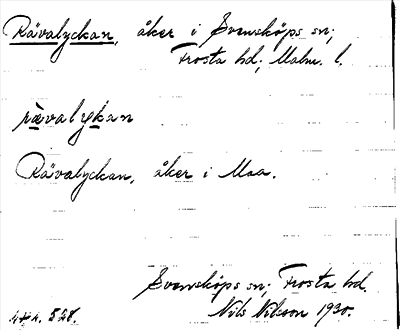 Rävalyckan, åker i Svensköps sn;
Frosta hd; Malm. l.
rävalykan
Rävalyckan, åker i Maa.
Svensköps sn; Frosta hd.
Nils Nilsson 1930.